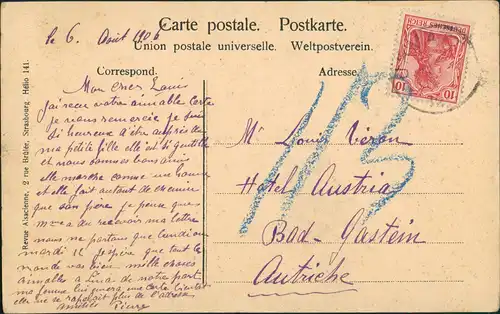 Carte postale. Postkarte.
le 6. Août 1906
Union postale universelle. Weltpostverein.
Correspond. Adresse.
Revue Alsacienne, 2 rue Brûlée, Strasbourg. Hélio 141.
DEUTSCHES REICH
10 10
Mon cher Louis
J'ai reçu votre aimable Carte
je vous remercie je suis
si heureuse d'être auprès de
ma petite fille elle est si gentille
et nous sommes bons amis
elle marche comme une
et elle fait autant de
que son père je pense que
recevoir ma lettre
nous ne partons que Lundi ou
mardi Il espère que tout le
monde va bien mille choses
aimables à Lina de notre part
ma femme lui écrira une carte bientôt
elle ne se rapelait plus de l'adresse
amitiés Pierre
Mr Louis Véron
Hotel Austria
Bad-Gastein
Autriche
113